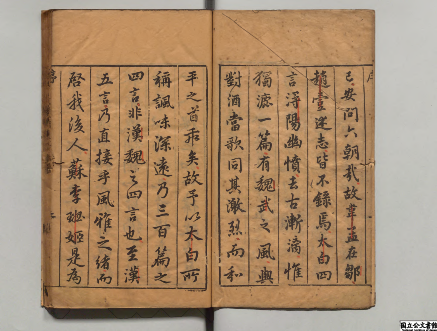 已安問六朝哉故韋孟在鄒
趙壹迷志皆不錄焉太白四
言潯陽幽憤去古漸漓惟
獨漉一篇有魏武之風與
對酒當歌同其激烈而和
平之旨乖矣故予以太白所
稱諷味深遠乃三百篇之
四言非漢魏之四言也至漢
五言乃直接乎風雅之緒而
啓我後人蘇李班姬是為
序
国立公文書館